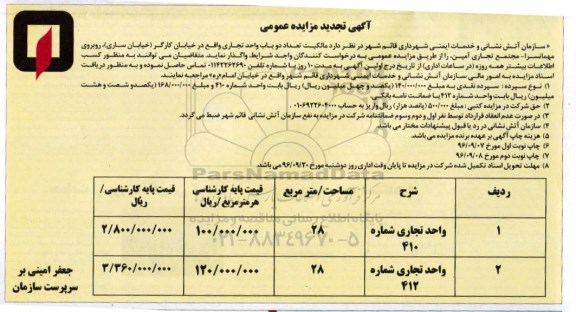 آگهی تجدید مزایده عمومی
« سازمان آتش نشانی و خدمات ایمنی شهرداری قائم شهر در نظر دارد مالکیت تعداد دو باب واحد تجاری واقع در خیابان کارگر (خیابان ساری)، روبروی
مهمانسرا- مجتمع تجاری آمین، را از طریق مزایده عمومی به درخواست کنندگان واجد شرایط، واگذار نماید. متقاضیان می توانند به منظور کسب
اطلاعات بیشتر همه روزه (در ساعات اداری) از تاریخ درج اولین آگهی به مدت ۱۰ روز با شماره تلفن ۰۱۱۴۲۲۶۲۶۹۰ تماس حاصل نموده و به منظور دریافت
اسناد مزایده به امور مالی سازمان آتش نشانی و خدمات ایمنی شهرداری قائم شهر واقع در خیابان امام«ره» مراجعه نمایند.
۱) نوع سپرده : سپرده نقدی به مبلغ ۱۴۰/۰۰۰/۰۰۰ (یکصد و چهل میلیون ریال) ریال بابت واحد شماره ۴۱۰ و مبلغ ۱۶۸/۰۰۰/۰۰۰ ریال (یکصدو شصت و هشت
میلیون) ریال بابت واحد شماره ۴۱۲ یا ضمانت نامه بانکی.
۲) حق شرکت در مزایده کتبی : مبلغ ۵۰۰/۰۰۰ (پانصد هزار) ریال واریز به حساب ۰۱۰۶۹۲۲۶۰۴۰۰۰ .
۳) در صورت عدم انعقاد قرارداد توسط نفر اول و دوم وسوم ضمانتنامه شرکت در مزایده به نفع سازمان آتش نشانی قائم شهر ضبط می گردد.
۴) سازمان آتش نشانی در رد یا قبول پیشنهادات مختار می باشد.
۵) هزینه چاپ آگهی بر عهده برنده مزایده می باشد.
۶) چاپ نوبت اول مورخ ۹۶/۰۹/۰۷
۷) چاپ نوبت دوم مورخ ۹۶/۰۹/۰۸
۸) مهلت تحویل اسناد تکمیل شده شرکت در مزایده تا پایان وقت اداری روز دوشنبه مورخ ۹۶/۰۹/۲۰ می باشد.
ردیف شرح مساحت/متر مربع قیمت پایه کارشناسی هرمترمربع/ریال قیمت پایه کارشناسی/ ریال
۱ واحد تجاری شماره ۴۱۰ ۲۸ ۱۰۰/۰۰۰/۰۰۰ ۲/۸۰۰/۰۰۰/۰۰۰
۲ واحد تجاری شماره ۴۱۲ ۲۸ ۱۲۰/۰۰۰/۰۰۰ ۳/۳۶۰/۰۰۰/۰۰۰
جعفر امینی بر
سرپرست سازمان
ParsNamadData
پایگاه اطلاع رسانی مناقصه و مزایده
۰۲۱-۸۸۳۴۹۶۷۰-۵